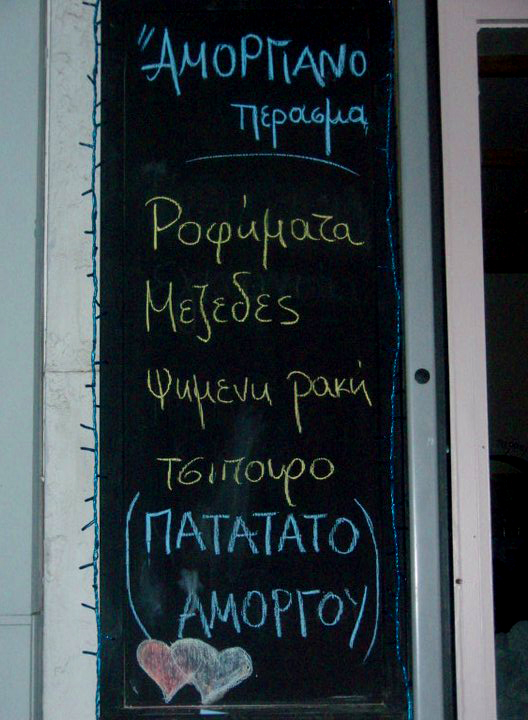 "ΑΜΟΡΓΙΑΝΟ
πέρασμα
Ροφήματα
Μεζεδες
ψημενη ρακή
τσιπουρο
(ΠΑΤΑΤΑΤΟ
ΑΜΟΡΓΟΥ)